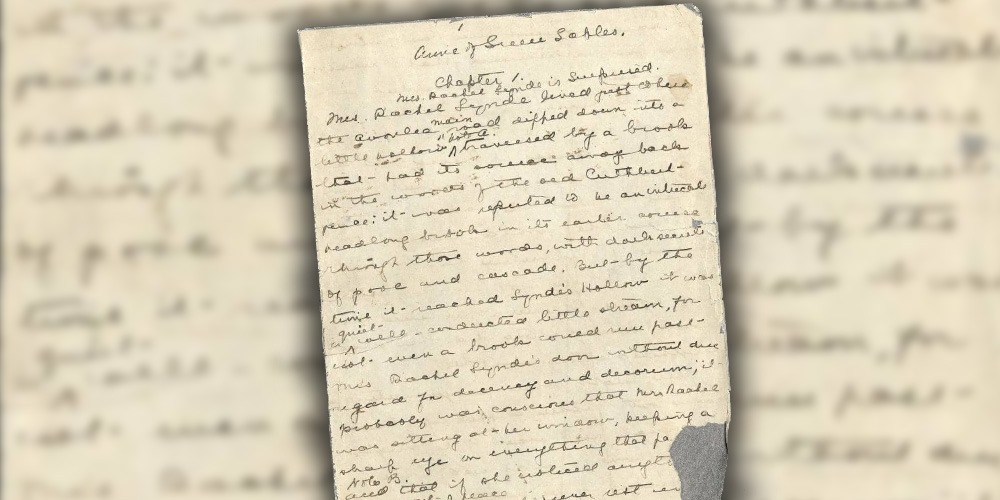 Anne of Green Gables.
Chapter 1.
Mrs. Rachel Lynde is Surprised.
Mrs. Rachel Lynde lived just where
the Avonlea main road dipped down into a
little hollow Note A. traversed by a brook
that had its source away back
in the woods of the old Cuthbert
place; it was reputed to be an intricate
headlong brook in its earlier course
through those woods, with dark secrets
of pool and cascade. But by the
time it reached Lynde's Hollow it was
a quiet well-conducted little stream, for
not even a brook could run past
Mrs Rachel Lynde's door without due
regard for decency and decorum; it
probably was conscious that Mrs Rachel
was sitting at her window, keeping a
sharp eye on everything that pa
Note B.
and that if she noticed anyt
never rest un